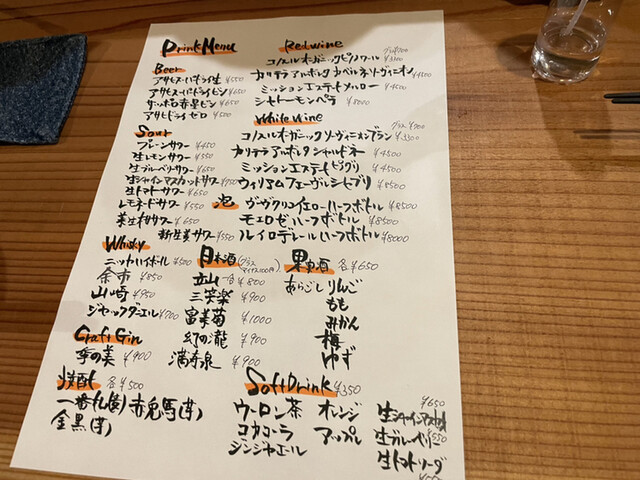 Drink Menu
Beer
アサヒスーパードライ生 ¥550
アサヒスーパードライビン ¥650
サッポロ赤星ビン ¥650
アサヒドライゼロ ¥500
Sour
プレーンサワー ¥450
生レモンサワー ¥550
生ブルーベリーサワー ¥650
生シャインマスカットサワー ¥750
生トマトサワー ¥650
レモネードサワー ¥550
¥650
新生姜サワー ¥550
Whisky
ニッカハイボール ¥500
余市 ¥850
山崎 ¥950
ジャックダニエル ¥700
Craft Gin
季の美 ¥900
焼酎 各¥500
赤兎馬(芋)
金黒(芋)
Red wine
コノスルオーガニックピノノワール ¥3300
カリテラアルボレダカベルネソーヴィニオン ¥4500
ミッションエステートメルロー ¥4500
シャトーモンペラ ¥8000
White Wine グラス¥700
コノスルオーガニックソーヴィニオンブラン ¥3300
カリテラアルボレダシャルドネ ¥4500
ミッションエステートピノグリ ¥4500
ウィリアムフェーヴルシャブリ ¥8500
泡
ヴーヴクリコイエローハーフボトル ¥8500
モエロゼハーフボトル ¥8500
ルイロデレールハーフボトル ¥8000
日本酒(グラスマイナス100円)
立山 一合 ¥800
三笑楽 ¥900
富美菊 ¥1000
幻の瀧 ¥900
満寿泉 ¥900
果実酒 各¥650
あらごしりんご
もも
みかん
梅
ゆず
Soft Drink ¥350
ウーロン茶 オレンジ
コカコーラ アップル
ジンジャエール
¥650
生シャインマスカット
生ブルーベリー ¥550
生トマトソーダ